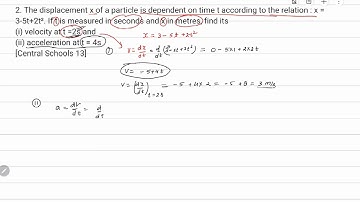 2. The displacement x of a particle is dependent on time t according to the relation : x =
3-5t+2t². If t is measured in seconds and x in metres, find its
(i) velocity at t = 2s and
(ii) acceleration at t = 4s.
[Central Schools 13]
x = 3 - 5t + 2t²
(i) v = dx/dt = d/dt (3 - 5t + 2t²) = 0 - 5×1 + 2×2t
v = -5 + 4t
v = (dx/dt) t=2s = -5 + 4×2 = -5 + 8 = 3 m/s
(ii) a = dv/dt = d/dt